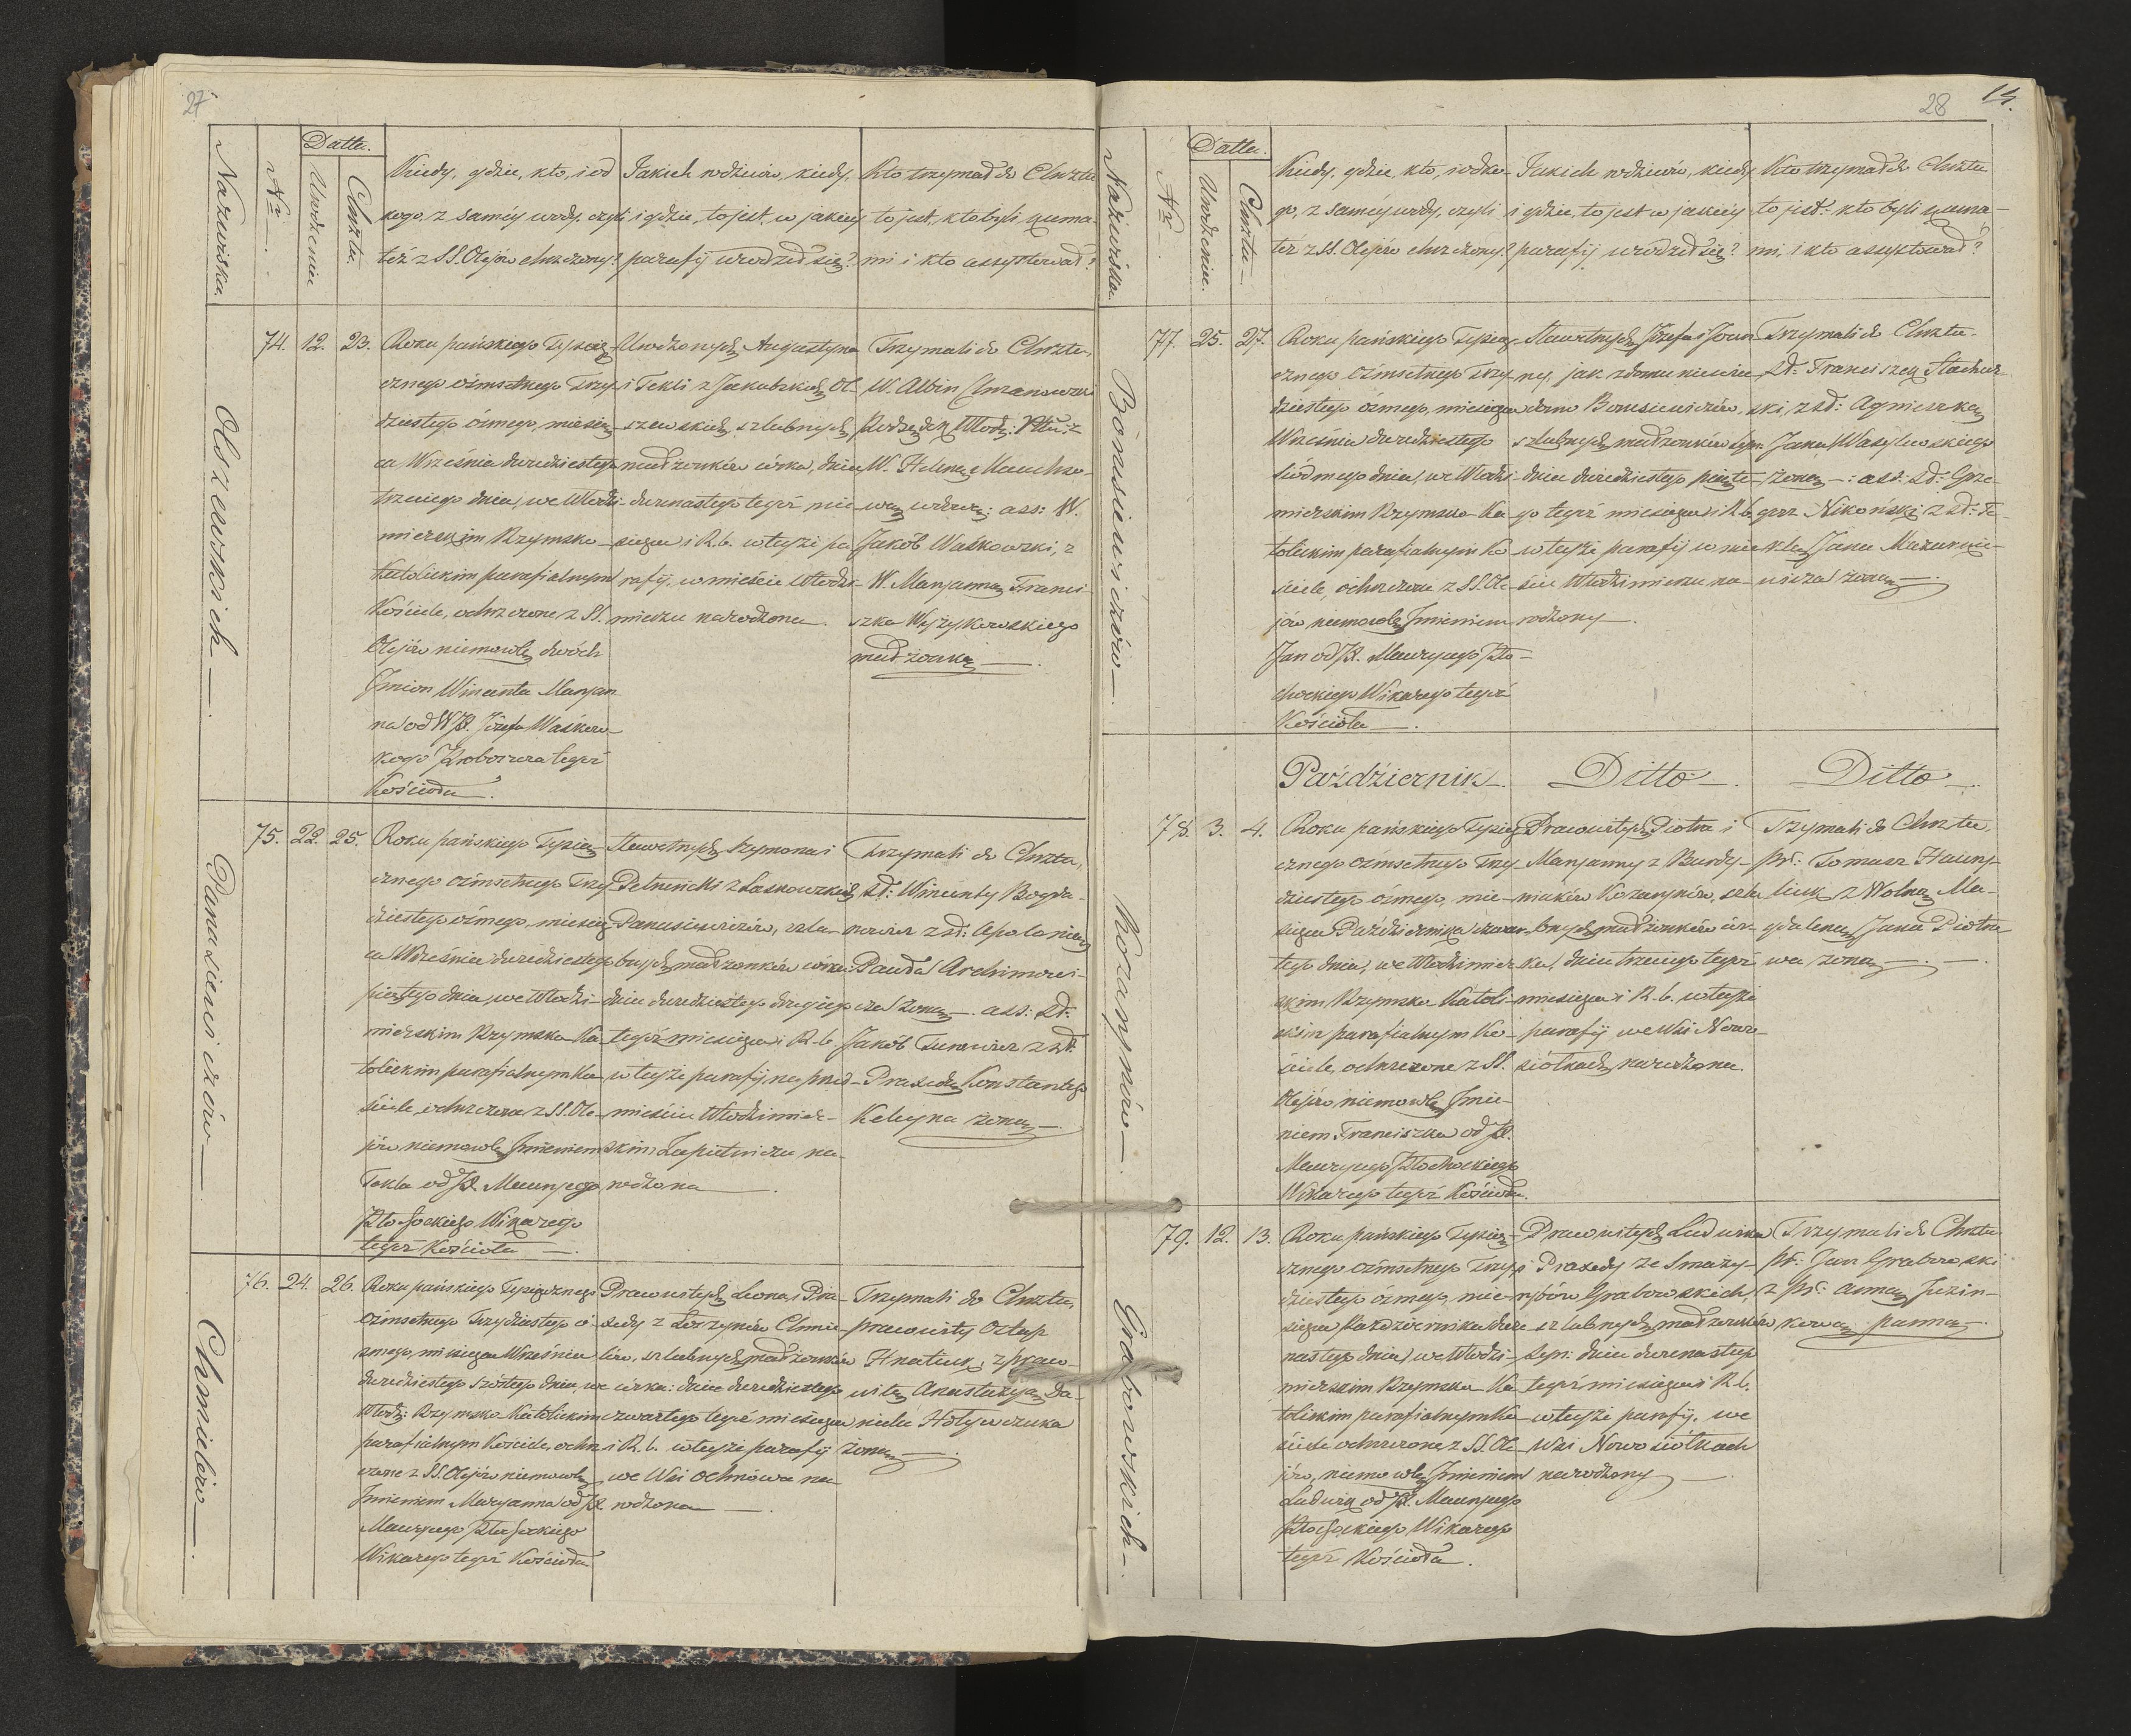 27
Datta.
Nazwiska.
N<sup>o</sup>
Urodzenia
Chrztu.
Kiedy, gdzie, kto, i od
kogo, z saméy wody, czyli
też z SS. Olejów chrzczony?
Jakich rodziców, kiedy,
i gdzie, to jest, w jakiéy
parafij urodził się?
Kto trzymał do Chrztu
to jest, kto byli kuma-
mi i kto assystował?
Olszewskich —.
74. 12. 23.
Roku pańskiego Tysiącz-
cznego ośmsetnego Trzy-
dziestego ósmego, miesią-
ca Września dwudziestego
trzeciego dnia, we Włodzi-
mierskim Rzymsko-
Katolickim parafialnym
Kościele, ochrzczone z SS.
Olejów niemowlę dwóch
Imion Wincenta Maryan-
na od WJX. Józefa Waśkow-
kogo Proboszcza tegoż
Kościoła.
Urodzonych Augustyna
i Tekli z Jakubskich Ol-
szewskich szlubnych
małżonków córka, dnia
dwunastego tegoż mie-
siąca i R. b. w tejże pa-
rafij, w mieście Włodzi-
mierzu narodzona.
Trzymali do Chrztu,
W. Albin
W. Helena
wdową: ass: W.
Jakób Waśkowski, z
W. Maryanną Franci-
szka Wyżykowskiego
małżonką —.
Panasiewiczów —.
75. 22. 25.
Roku pańskiego Tysiąc-
cznego ośmsetnego Trzy-
dziestego ósmego, miesią-
ca Września dwudziestego
piątego dnia, we Włodzi-
mierskim Rzymsko-Ka-
tolickim parafialnym Ko-
ściele, ochrzczone z SS. Ole-
jów niemowlę Imieniem
Tekla od JX. Maurycego
Płochockiego Wikarego
tegoż Kościoła —.
Sławetnych Szymona i
Petroneli z Laskowskich
Panasiewiczów, szlu-
bnych małżonków córka:
dnia dwudziestego drugiego
tegoż miesiąca i R. b.
w tejże parafij, na przed-
mieściu Włodzimier-
skim Zapiatniczu na-
rodzona —.
Trzymali do Chrztu,
sł: Wincenty Bogda-
nowicz z sł: Apolonią
Pawła Archimowi-
cza żoną —. ass: sł:
Jakób Turowicz z sł:
Praxedą Konstantego
Kaleyna żoną —.
Chmielów —.
76. 24. 26.
Roku pańskiego Tysiącznego
Ośmsetnego Trzydziestego ó-
smego, miesiąca Września
dwudziestego szóstego dnia, we
Włodz: Rzymsko-Katolickim
parafialnym Kościele, ochrz-
czone z SS. Olejów niemowlę
Imieniem Maryanna od JX.
Maurycego Płochockiego
Wikarego tegoż Kościoła
Pracowitych Leona i Pra-
xedy z Łoszynów Chmie-
lów, szlubnych małżonków
córka: dnia dwudziestego
czwartego tegoż miesiąca
i R. b. w tejże parafij
we Wsi Ochnówce na-
rodzona —.
Trzymali do Chrztu,
pracowity Ostap
Hnatiuk, z praco-
witą Anastazyą Da-
niela Hołyaczuka
żoną —.
28
14.
Datta.
Nazwiska.
N<sup>o</sup>
Urodzenia.
Chrztu —
Kiedy, gdzie, kto, i od ko-
go, z saméy wody, czyli
też z SS. Olejów chrzczony?
Jakich rodziców, kiedy
i gdzie, to jest w jakiéy
parafij urodził się?
Kto trzymał do Chrztu
to jest: kto byli kuma-
mi, i kto assystował?
Bonusiewiczów —.
77. 25. 27.
Roku pańskiego Tysiąc-
cznego Ośmsetnego trzy-
dziestego ósmego, miesiąca
Września dwudziestego
siódmego dnia, we Włodzi-
mierskim Rzymsko-Ka-
tolickim parafialnym Ko-
ściele, ochrzczone z SS. Ole-
jów niemowlę Imieniem
Jan od JX. Maurycego Pło-
chockiego Wikarego tegoż
Kościoła —.
Sławetnych Józefa i Joan-
ny, jak z domu niewia-
domo Bonusiewiczów,
szlubnych małżonków syn:
dnia dwudziestego piąte-
go tegoż miesiąca i R. b.
w tejże parafij w mie-
ście Włodzimierzu na-
rodzony —.
Trzymali do Chrztu
sł: Franciszek Stachur-
ski, z sł: Agnieszką
Jana Wasylewskiego
żoną —: ass: sł: Grze-
gorz Nikoński z sł: Te-
klą Jana Mazurkie-
wicza żoną —.
Październik —. Ditto —. Ditto —.
Kozaczynów —.
78. 3. 4.
Roku pańskiego Tysiąc-
cznego ośmsetnego Trzy-
dziestego ósmego, mie-
siąca Października czwar-
tego dnia, we Włodzimier-
skim Rzymsko Katoli-
ckim parafialnym Ko-
ściele, ochrzczone z SS.
Olejów niemowlę Imie-
niem Franciszka od JX.
Maurycego Płochockiego
Wikarego tegoż Kościoła.
Pracowitych Piotra i
Maryanny z Burdy-
niuków Kozaczynów, szlu-
bnych małżonków cór-
ka, dnia trzeciego tegoż
miesiąca i R. b. w tejże
parafij we Wsi Nowo-
siółkach narodzona.
Trzymali do Chrztu,
pr: Tomasz
z Wolną Ma-
gdaleną Jana Piotro-
wa żoną —. —.
Grabowskich —.
79. 12. 13.
Roku pańskiego Tysiąc-
cznego ośmsetnego Trzy-
dziestego ósmego, mie-
siąca Października trzy-
nastego dnia, we Włodzi-
mierskim Rzymsko-Ka-
tolickim parafialnym Ko-
ściele ochrzczone z SS. Ole-
jów, niemowlę Imieniem
Ludwik od JX. Maurycego
Płochockiego Wikarego
tegoż Kościoła.
Pracowitych Ludwika
i Praxedy ze Smaży-
rybów Grabowskich,
szlubnych małżonków
syn: dnia dwunastego
tegoż miesiąca i R. b.
w tejże parafij, we
Wsi Nowosiółkach
narodzony —.
Trzymali do Chrztu
pr: Jan Grabowski
z pr: Anną Juzin-
kową panną —.